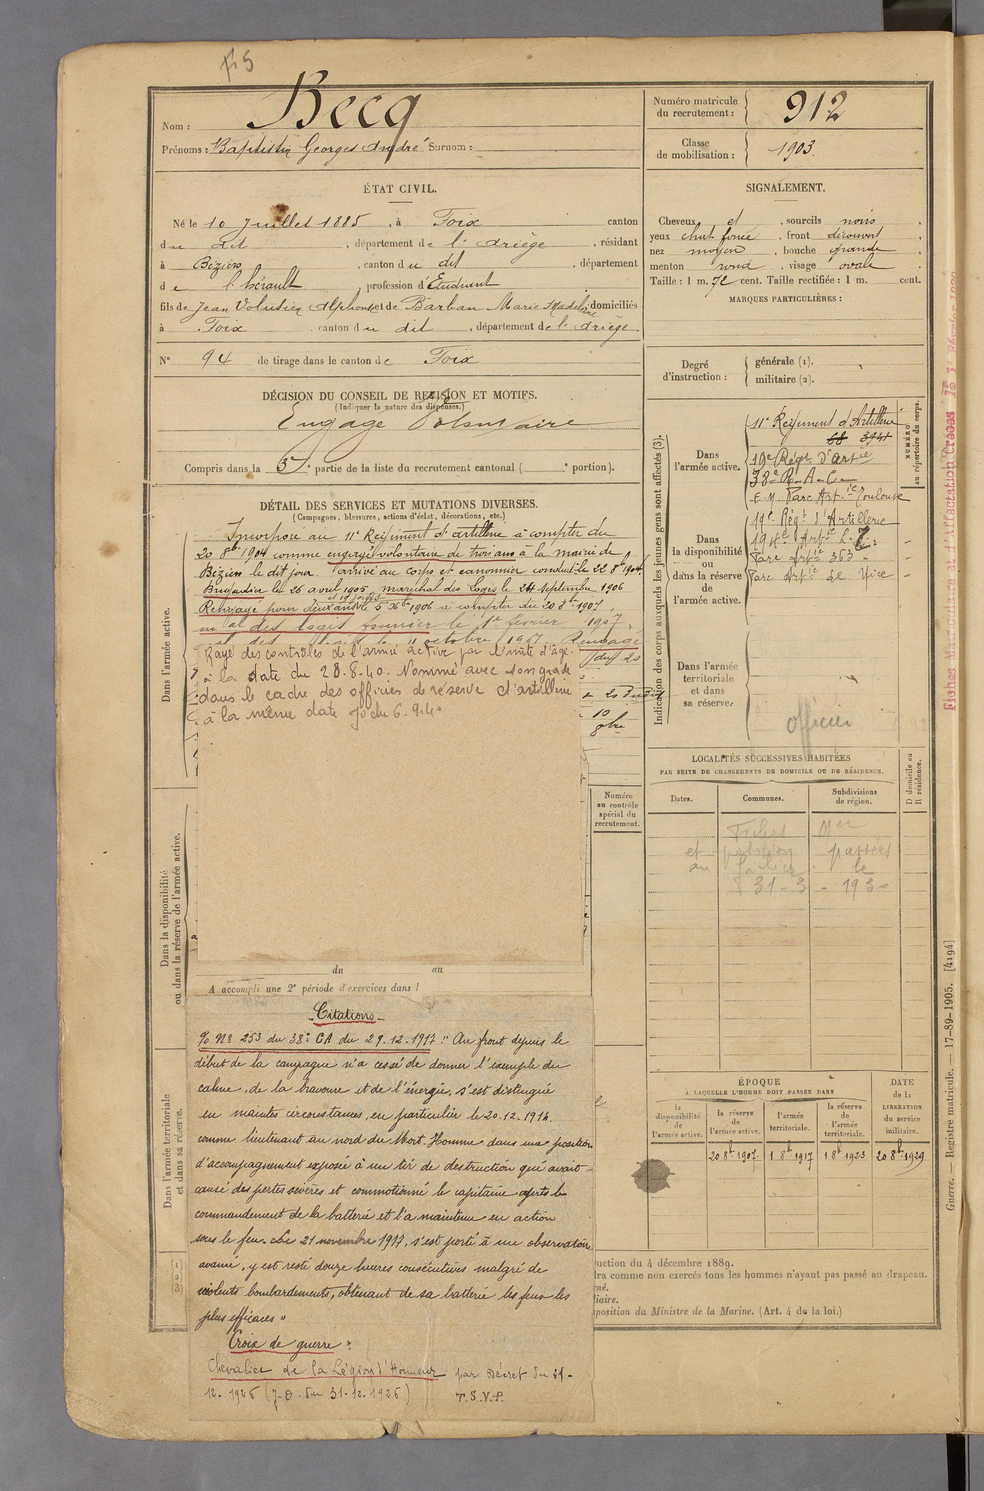 Becq
Nom :
Prénoms : Baptistin Georges André Surnom :
Numéro matricule
du recrutement : 912
Classe
de mobilisation : 1903
ÉTAT CIVIL.
Né le 10 Juillet 1885, à Foix canton
du dit, département de l'Ariège, résidant
à Béziers, canton du dit, département
de l'hérault, profession d'Étudiant
fils de Jean Volusien Alphonse et de Barban Marie Madeleine, domiciliés
à Foix, canton du dit, département de l'Ariège.
N° 94 de tirage dans le canton de Foix
SIGNALEMENT.
Cheveux et, sourcils noirs,
yeux chat. foncé, front découvert,
nez moyen, bouche grande,
menton rond, visage ovale.
Taille : 1 m. 72 cent. Taille rectifiée : 1 m. cent.
MARQUES PARTICULIÈRES :
Degré
d'instruction : générale (1).
militaire (2).
DÉCISION DU CONSEIL DE REVISION ET MOTIFS.
(Indiquer la nature des dispenses.)
Engagé Volontaire
Compris dans la 3e partie de la liste du recrutement cantonal ( e portion).
DÉTAIL DES SERVICES ET MUTATIONS DIVERSES.
(Campagnes, blessures, actions d'éclat, décorations, etc.)
Incorporé au 11e Régiment d'artillerie à compter du
20 8bre 1904 comme engagé volontaire de trois ans à la mairie de
Béziers le dit jour. arrivé au corps et canonnier conduct. le 22 8bre 1904.
Brigadier le 26 avril 1905 maréchal des Logis le 24 septembre 1906
Rengagé pour deux ans le 5 Xbre 1906 à compter du 20 8bre 1907,
al des logis fourrier le 1er février 1907,
octobre 1907. Rengagé
Rayé des contrôles de l'armée active par limite d'âge
à la date du 28-8-40. Nommé avec son grade
dans le cadre des officiers de réserve d'artillerie
à la même date Jo du 6.9.40
Dans l'armée active.
Dans la disponibilité
ou dans la réserve de l'armée active.
Dans l'armée territoriale
et dans sa réserve.
Numéro
au contrôle
spécial du
recrutement.
du au
A accompli une 2e période d'exercices dans l
Citations
O/ No 253 du 38e CA du 29.12.1917 : " Au front depuis le
début de la campagne n'a cessé de donner l'exemple du
calme, de la bravoure et de l'énergie, s'est distingué
en maintes circonstances, en particulier le 20.12.1914
comme lieutenant au nord du Mort-Homme dans une position
d'accompagnement exposée à un tir de destruction qui avait
causé des pertes sévères et commotionné le capitaine après le
commandement de la batterie et l'a maintenue en action
sous le feu. Le 21 novembre 1917, s'est porté à un observatoire
avancé, y est resté douze heures consécutives malgré de
violents bombardements, obtenant de sa batterie les feux les
plus efficaces "
Croix de guerre.
Chevalier de la Légion d'Honneur par Décret du 21-
12.1926 (J.O. du 31-12.1926) T.S.V.P.
Indication des corps auxquels les jeunes gens sont affectés (3).
NUMÉRO
au répertoire du corps.
Dans
l'armée active.
11e Régiment d'Artillerie
68 3941
19e Régt d'Artie
38e R-A-C-
E. M. Parc Art.ie Toulouse
Dans
la disponibilité
ou
dans la réserve de
l'armée active.
19e Régt d'Artillerie
Parc Artie 363
Parc Artie de Nice
Dans l'armée
territoriale
et dans
sa réserve.
officier
LOCALITÉS SUCCESSIVES HABITÉES
PAR SUITE DE CHANGEMENTS DE DOMICILE OU DE RÉSIDENCE.
D domicile ou
R résidence.
Dates.
Communes.
Subdivisions
de région.
Fiches Mle
et position passées
au fichier le
31-3-1930
ÉPOQUE
À LAQUELLE L'HOMME DOIT PASSER DANS
DATE
de la
LIBÉRATION
du service
militaire.
la
disponibilité
de
l'armée active.
la réserve
de
l'armée active.
l'armée
territoriale.
la réserve
de
l'armée
territoriale.
20 8bre 1907
1 8bre 1917
1 8bre 1923
20 8bre 1929
uction du 4 décembre 1889.
dra comme non exercés tous les hommes n'ayant pas passé au drapeau.
né.
liaire.
sposition du Ministre de la Marine. (Art. 4 de la loi.)
Guerre. — Registre matricule. — 17-89-1905. [4194]